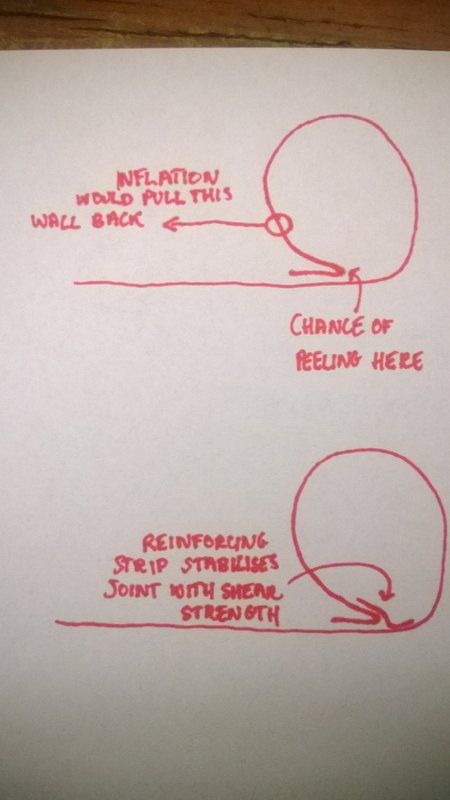 INFLATION
WOULD PULL THIS
WALL BACK
CHANCE OF
PEELING HERE
REINFORCING
STRIP STABILISES
JOINT WITH SHEAR
STRENGTH